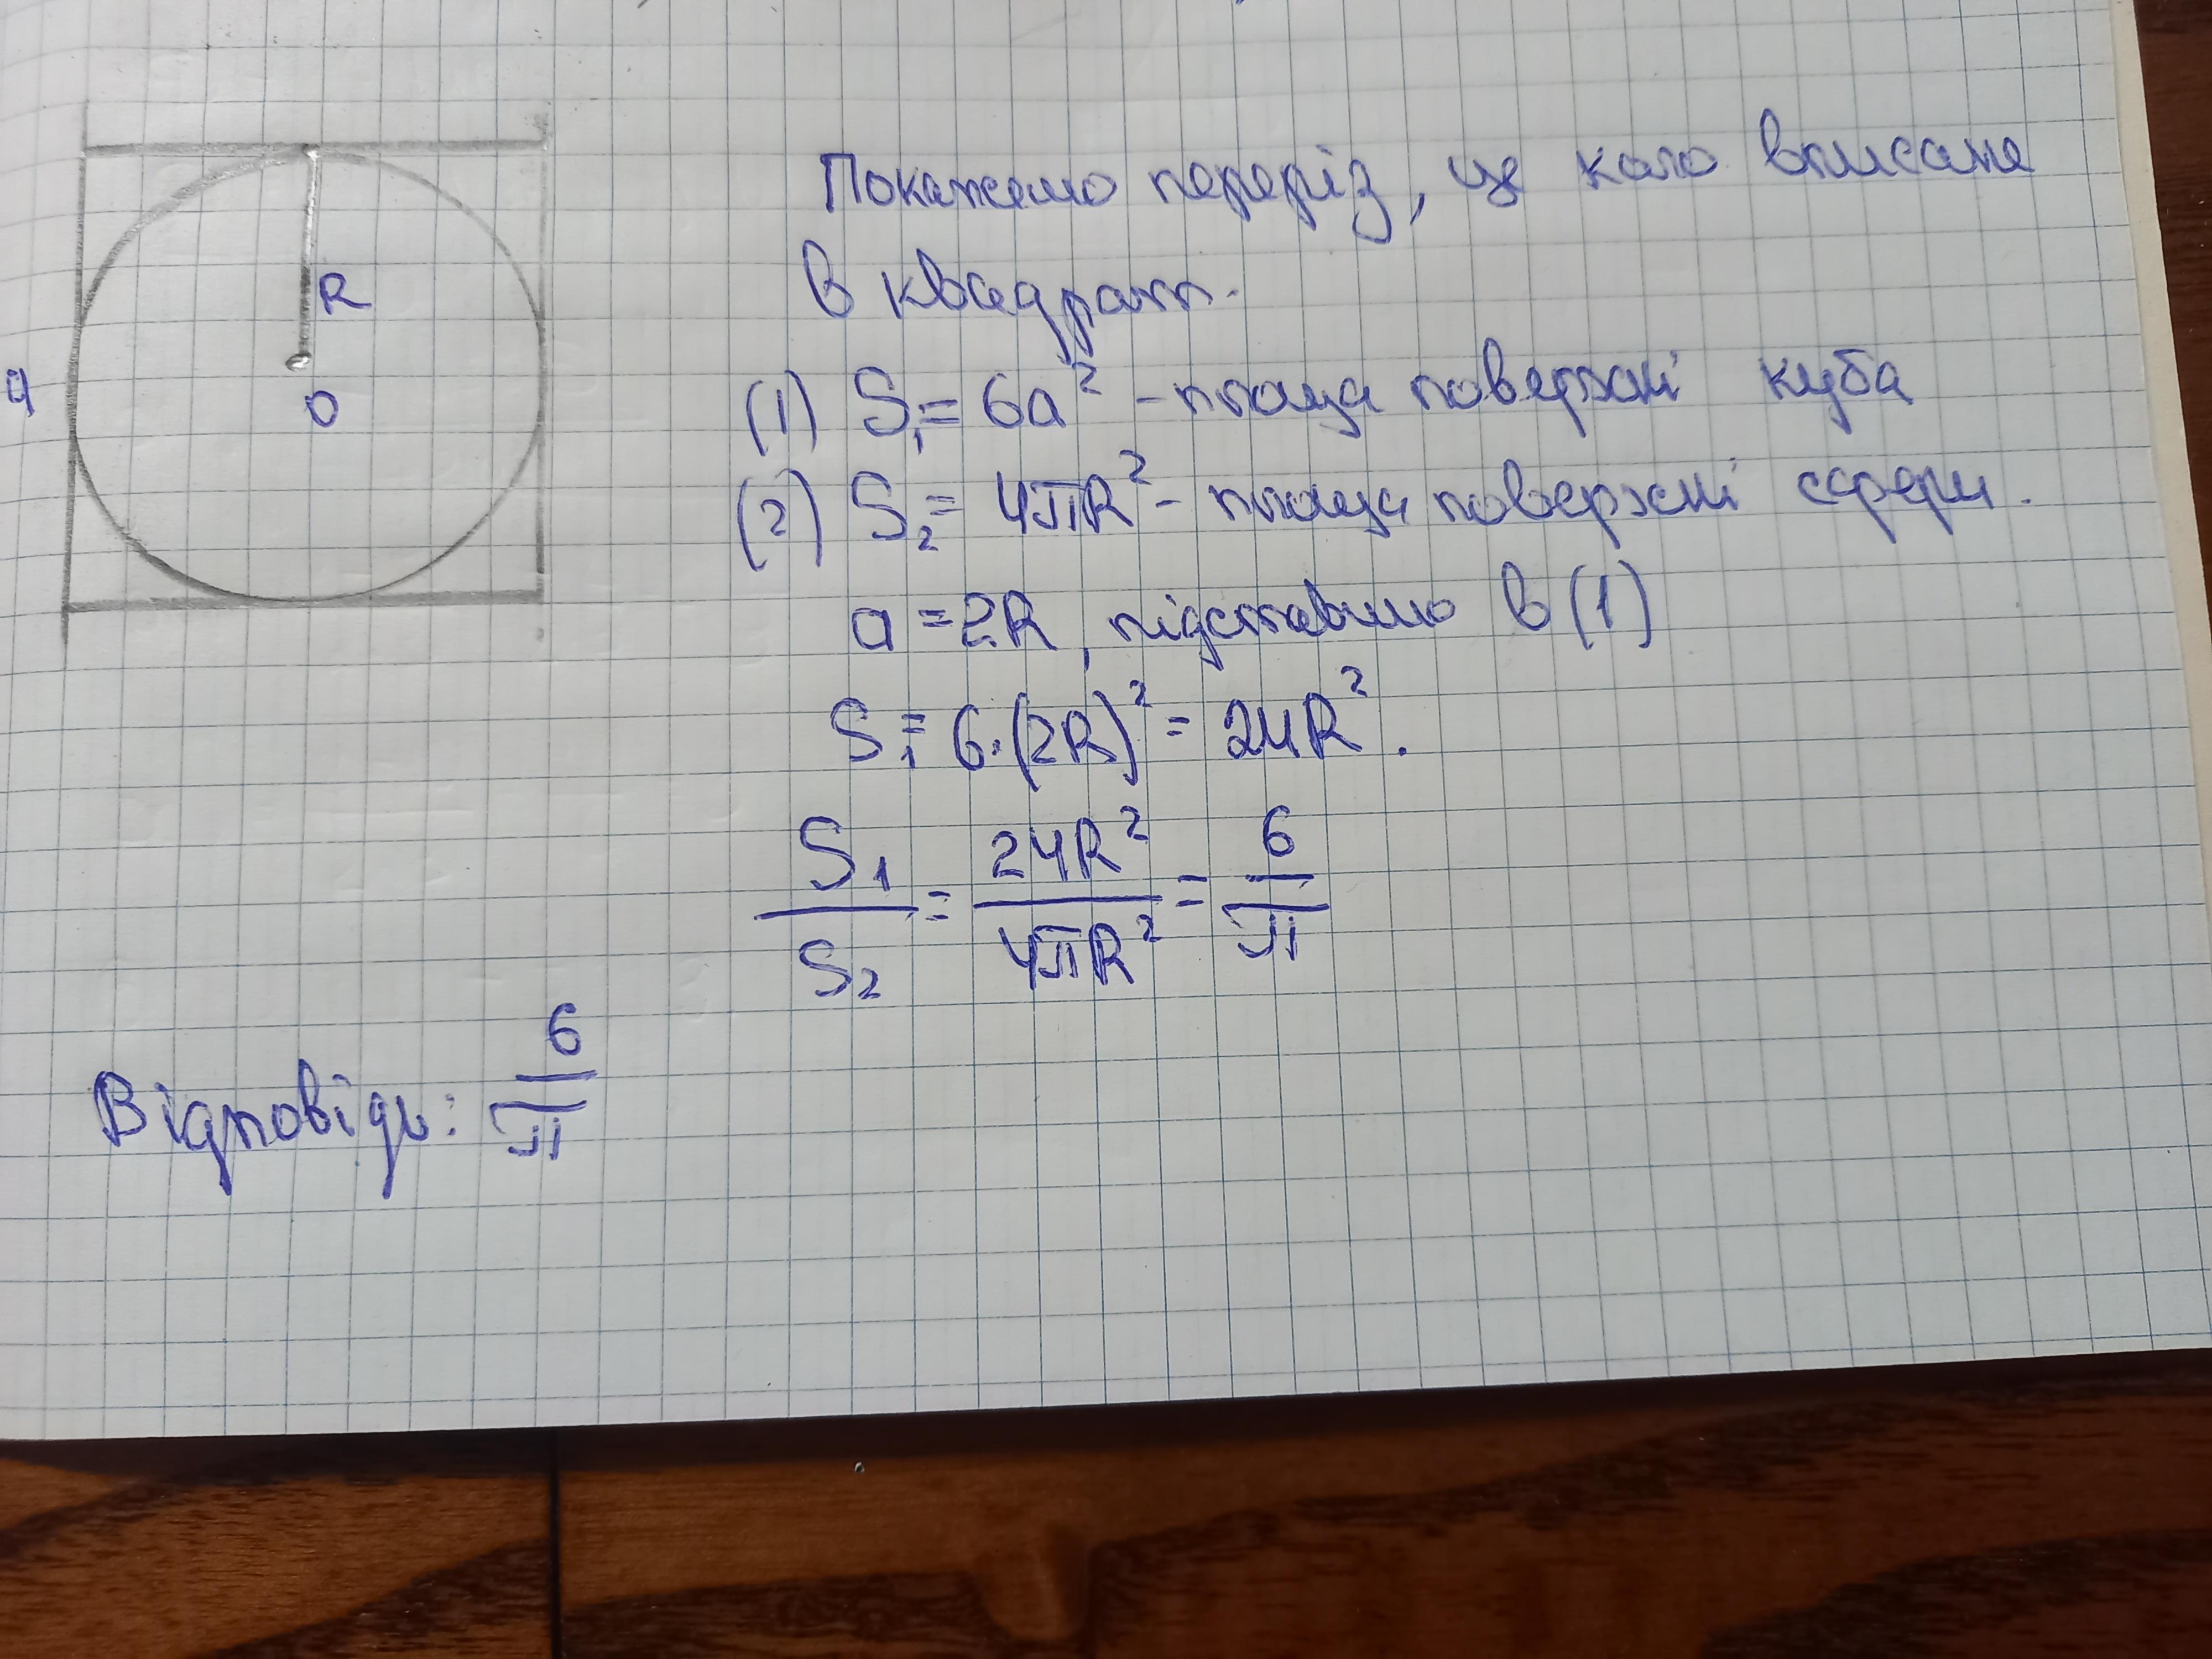 Покажемо переріз, це коло вписане
в квадрат.
a
R
O
(1) S₁ = 6a² - площа поверхні куба
(2) S₂ = 4πR² - площа поверхні сфери.
a = 2R, підставимо в (1)
S₁ = 6·(2R)² = 24R².
S₁/S₂ = 24R²/4πR² = 6/π
Відповідь: 6/π